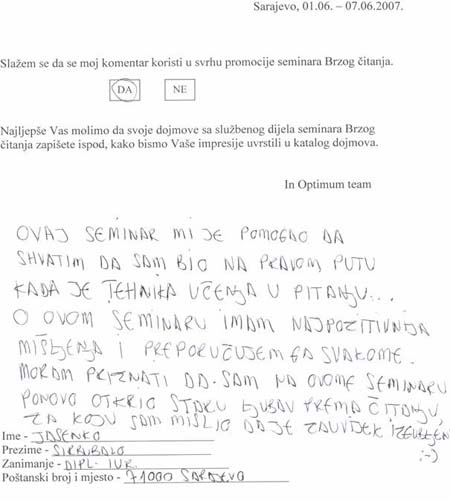 Sarajevo, 01.06. – 07.06.2007.
Slažem se da se moj komentar koristi u svrhu promocije seminara Brzog čitanja.
DA NE
Najljepše Vas molimo da svoje dojmove sa službenog dijela seminara Brzog
čitanja zapišete ispod, kako bismo Vaše impresije uvrstili u katalog dojmova.
In Optimum team
OVAJ SEMINAR MI JE POMOGAO DA
SHVATIM DA SAM BIO NA PRAVOM PUTU
KADA JE TEHNIKA UČENJA U PITANJU...
O OVOM SEMINARU IMAM NAJPOZITIVNIJA
MIŠLJENJA I PREPORUČUJEM GA SVAKOME.
MORAM PRIZNATI DA SAM NA OVOME SEMINARU
PONOVO OTKRIO STARU LJUBAV PREMA ČITANJU,
ZA KOJU SAM MISLIO DA JE ZAUVIJEK IZGUBLJEN
:-)
Ime - JASENKO
Prezime -
Zanimanje - DIPL. IUR.
Poštanski broj i mjesto - 71000 SARAJEVO